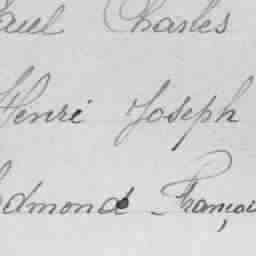 Paul Charles
Henri Joseph
Edmond François